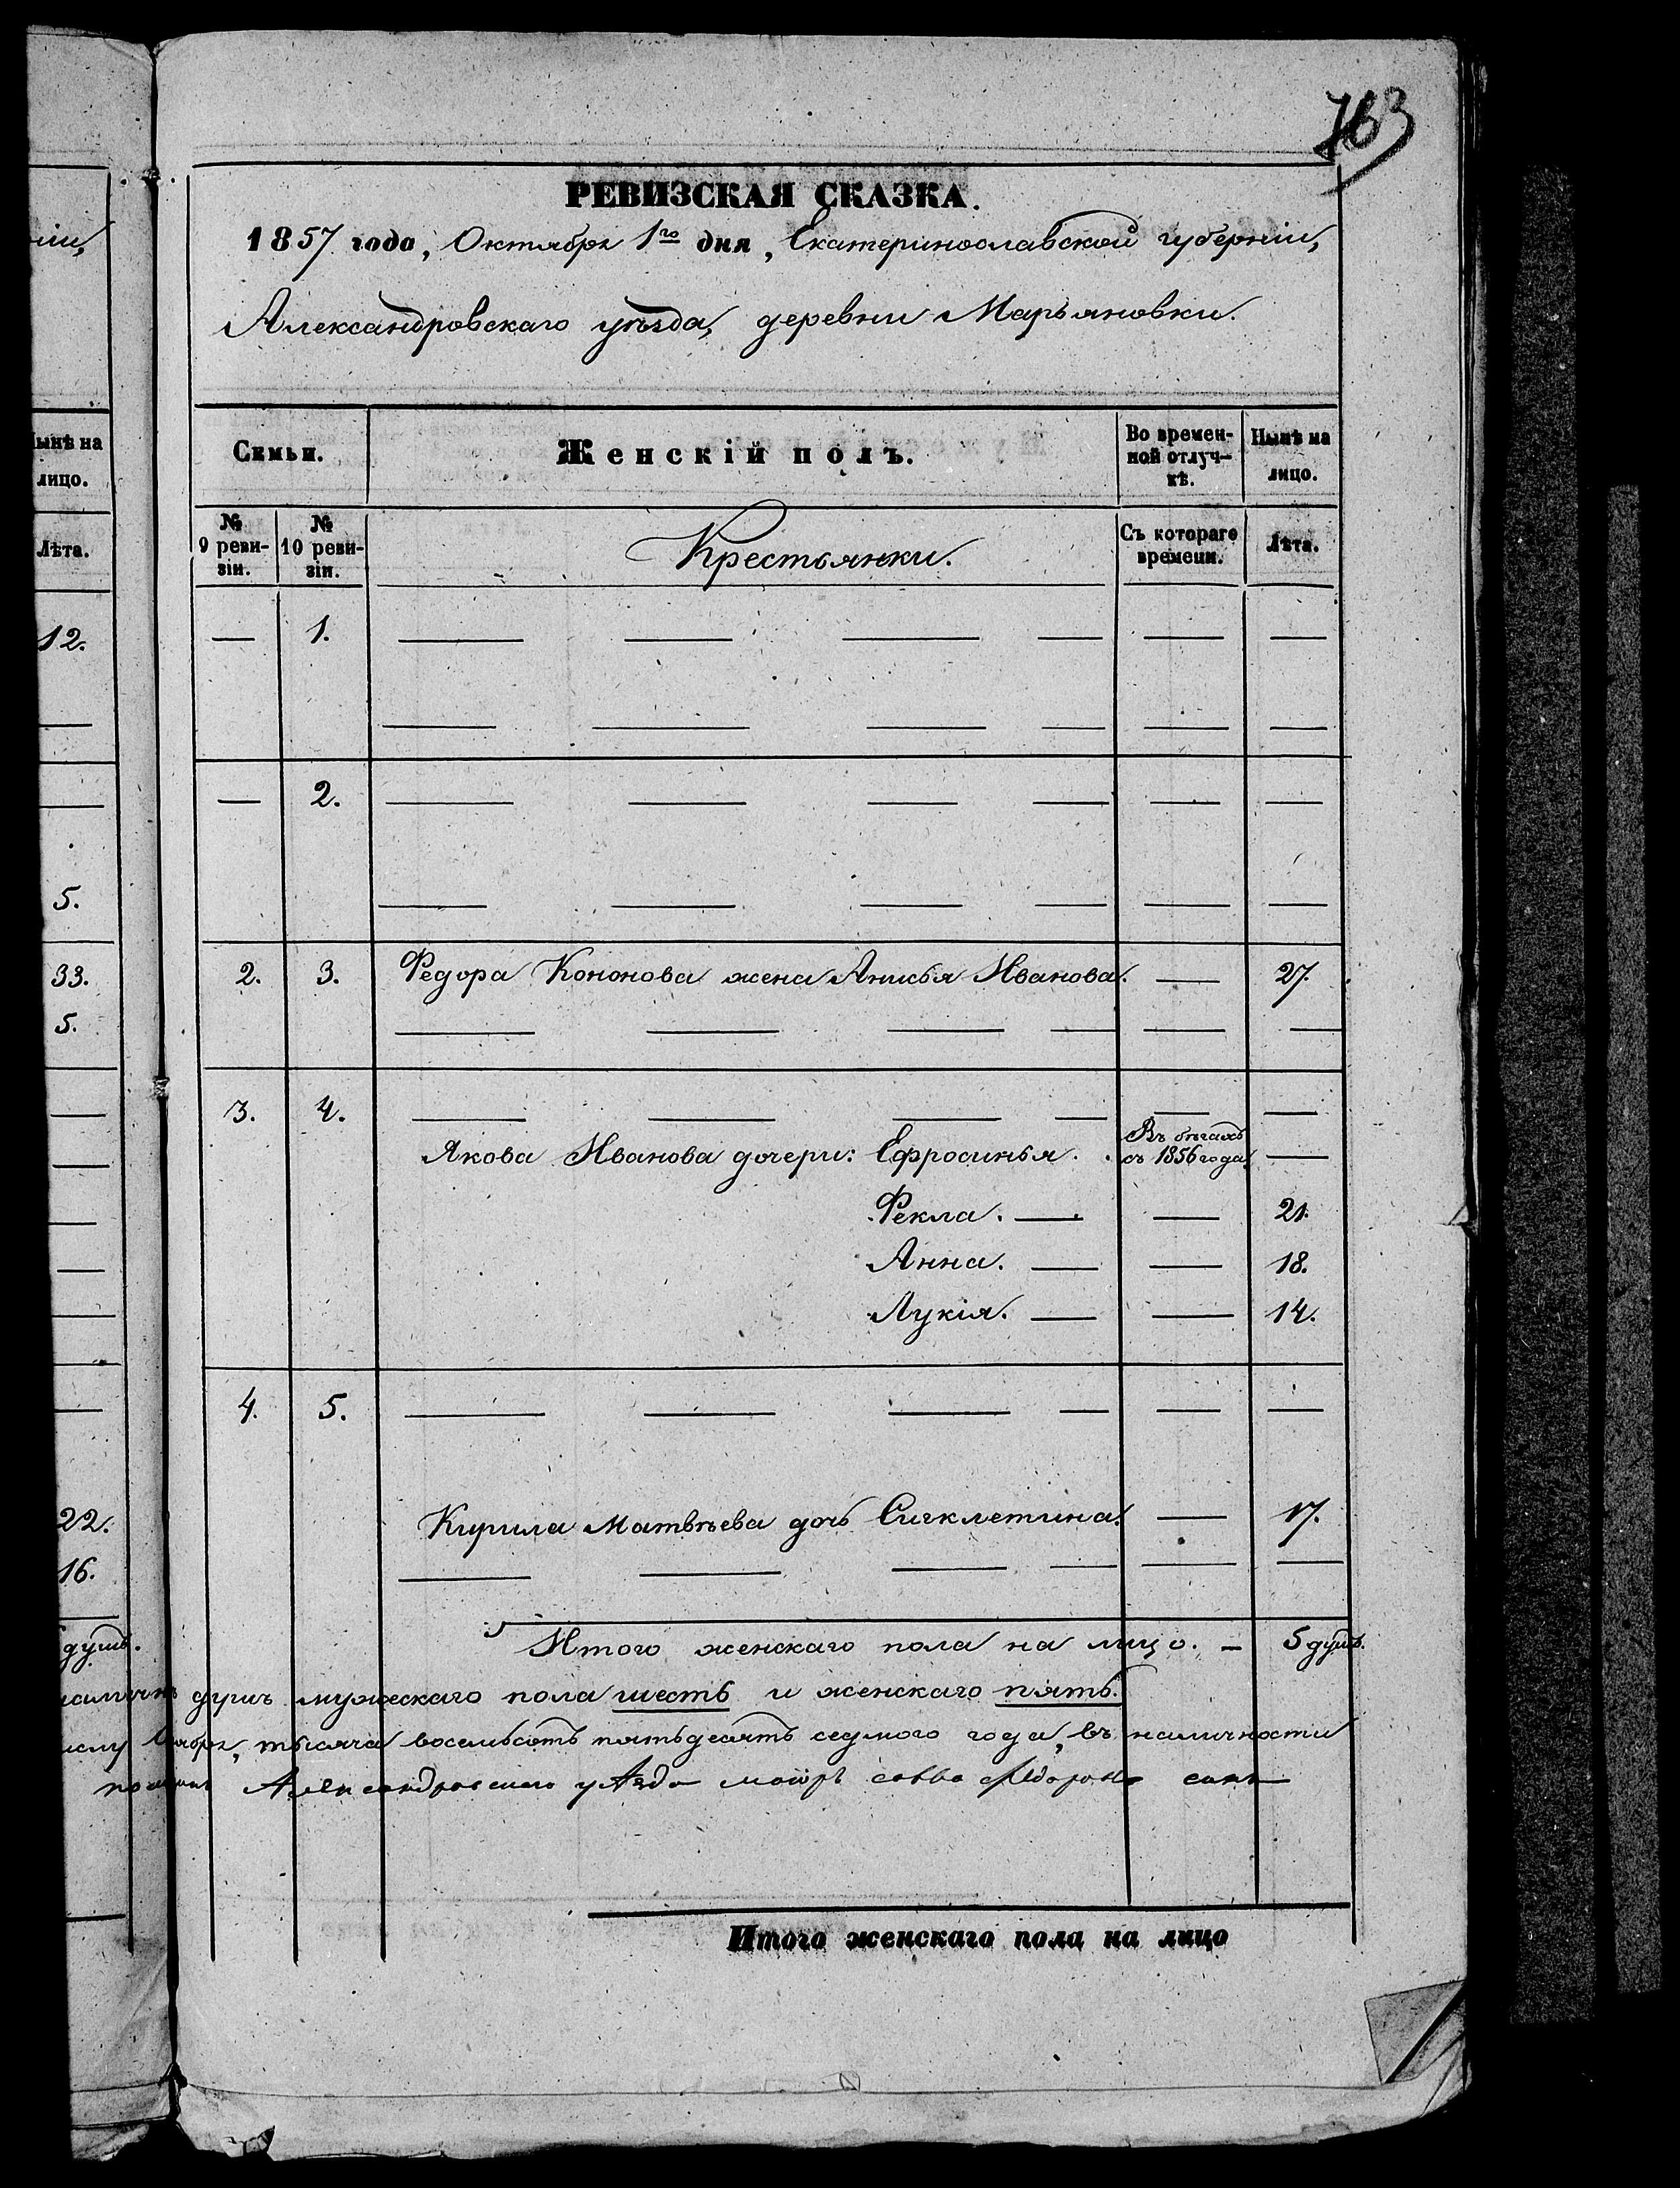 763
РЕВИЗСКАЯ СКАЗКА.
1857 года, Октября 1го дня, Екатеринославской губернiи,
Александровскаго уѣзда, деревни Марьяновки.
Семьи. Женскiй полъ. Во времен-ной отлуч-кѣ. Нынѣ на лицо.
№ 9 реви-зiи. № 10 реви-зiи. Крестьянки. Съ котораго времени. Лѣта.
— 1. — — — — — —
— — — — — —
— 2. — — — — — —
— — — — — —
2. 3. Федора Кононова жена Анисья Иванова. — 27.
— — — — — —
3. 4. — — — — — —
Якова Иванова дочери: Ефросинья. Въ бѣгахъ съ 1856 года. —
Фекла. — — 21.
Анна. — — 18.
Лукiя. — — 14.
4. 5. — — — — — —
Кирила Матвѣева дочь Сигклетина. — 17.
— — — — — —
Итого женскаго пола на лицо. — 5 душъ.
душъ мужескаго пола шесть и женскаго пять.
тысяча восемьсотъ пятьдесятъ седмого года, въ наличности
Александровского уѣзда маiоръ савва сынъ
Итого женскаго пола на лицо
iи,
Нынѣ на
лицо.
Лѣта.
12.
5.
33.
5.
22.
16.
душъ.